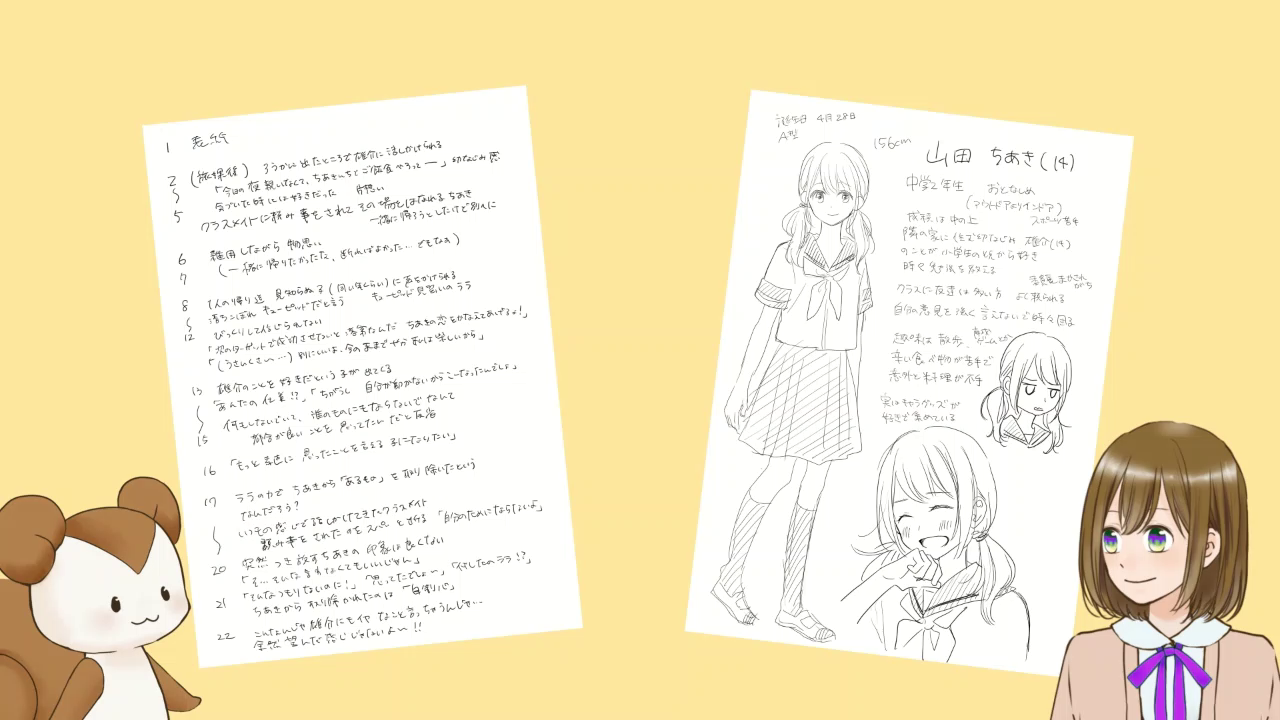 1 表紙
2 (放課後) ろうかに出たところで雄介に話しかけられる
「今日の夜親いなくて、ちあきんちでご飯食べやろってー」幼なじみ
5 気づいた時には好きだった 片想い
クラスメイトに頼み事をされてその場をはなれるちあき
一緒に帰ろうとしたけど別々に
6 雑用しながら物思い
7 (一緒に帰りたかったな、断ればよかった…でもなぁ)
8 1人の帰り道 見知らぬ子(同い年くらい)に声をかけられる
落ちこぼれキューピッドだと言う キューピッド見習いのララ
12 びっくりして信じられない
「次のターゲットで成功させないと落第なんだ ちあきの恋をかなえてあげるよ!」
「(うさんくさー…)別にいいよ、今のままでやか 私は楽しいから」
13 雄介のことを好きだという子が出てくる
「あんたの仕業!?」「ちがうし 自分が動かないからこーなったんでしょ」
何もしないでいて、誰のものにもならないでなんて
15 都合が良いことを思ってたんだと反省
16 「もっと素直に思ったことを言える子になりたい」
17 ララの力でちあきから「あるもの」を取り除いたという
なんだろう?
いつもの感じで話しかけてきたクラスメイト
頼み事をされたのをズバッと断る「自分のためにならないよ」
20 突然つき放すちあきの印象は良くない
「そ…そんな言い方しなくてもいいじゃん」
「そんなつもりないのに!」「思ってたでしょ〜」「何したのララ!?」
21 ちあきから取り除かれたのは「自制心」
22 こんなんじゃ雄介にもイヤなこと言っちゃうんじゃ…
全然望んだ感じじゃないよ〜!!
誕生日 4月28日
A型
156cm
山田 ちあき(14)
中学2年生 おとなしめ
(アウトドアよりインドア)
成績は中の上 スポーツ苦手
隣の家に住む幼なじみ 雄介(14)
のことが小学生の頃から好き
時々勉強を教える
学級委員まかされがち
クラスに友達は多い方 よく頼られる
自分の意見を強く言えないで時々困る
趣味は散歩、
辛い食べ物が苦手で
意外と料理が不得手
実はキャラグッズが
好きで集めている